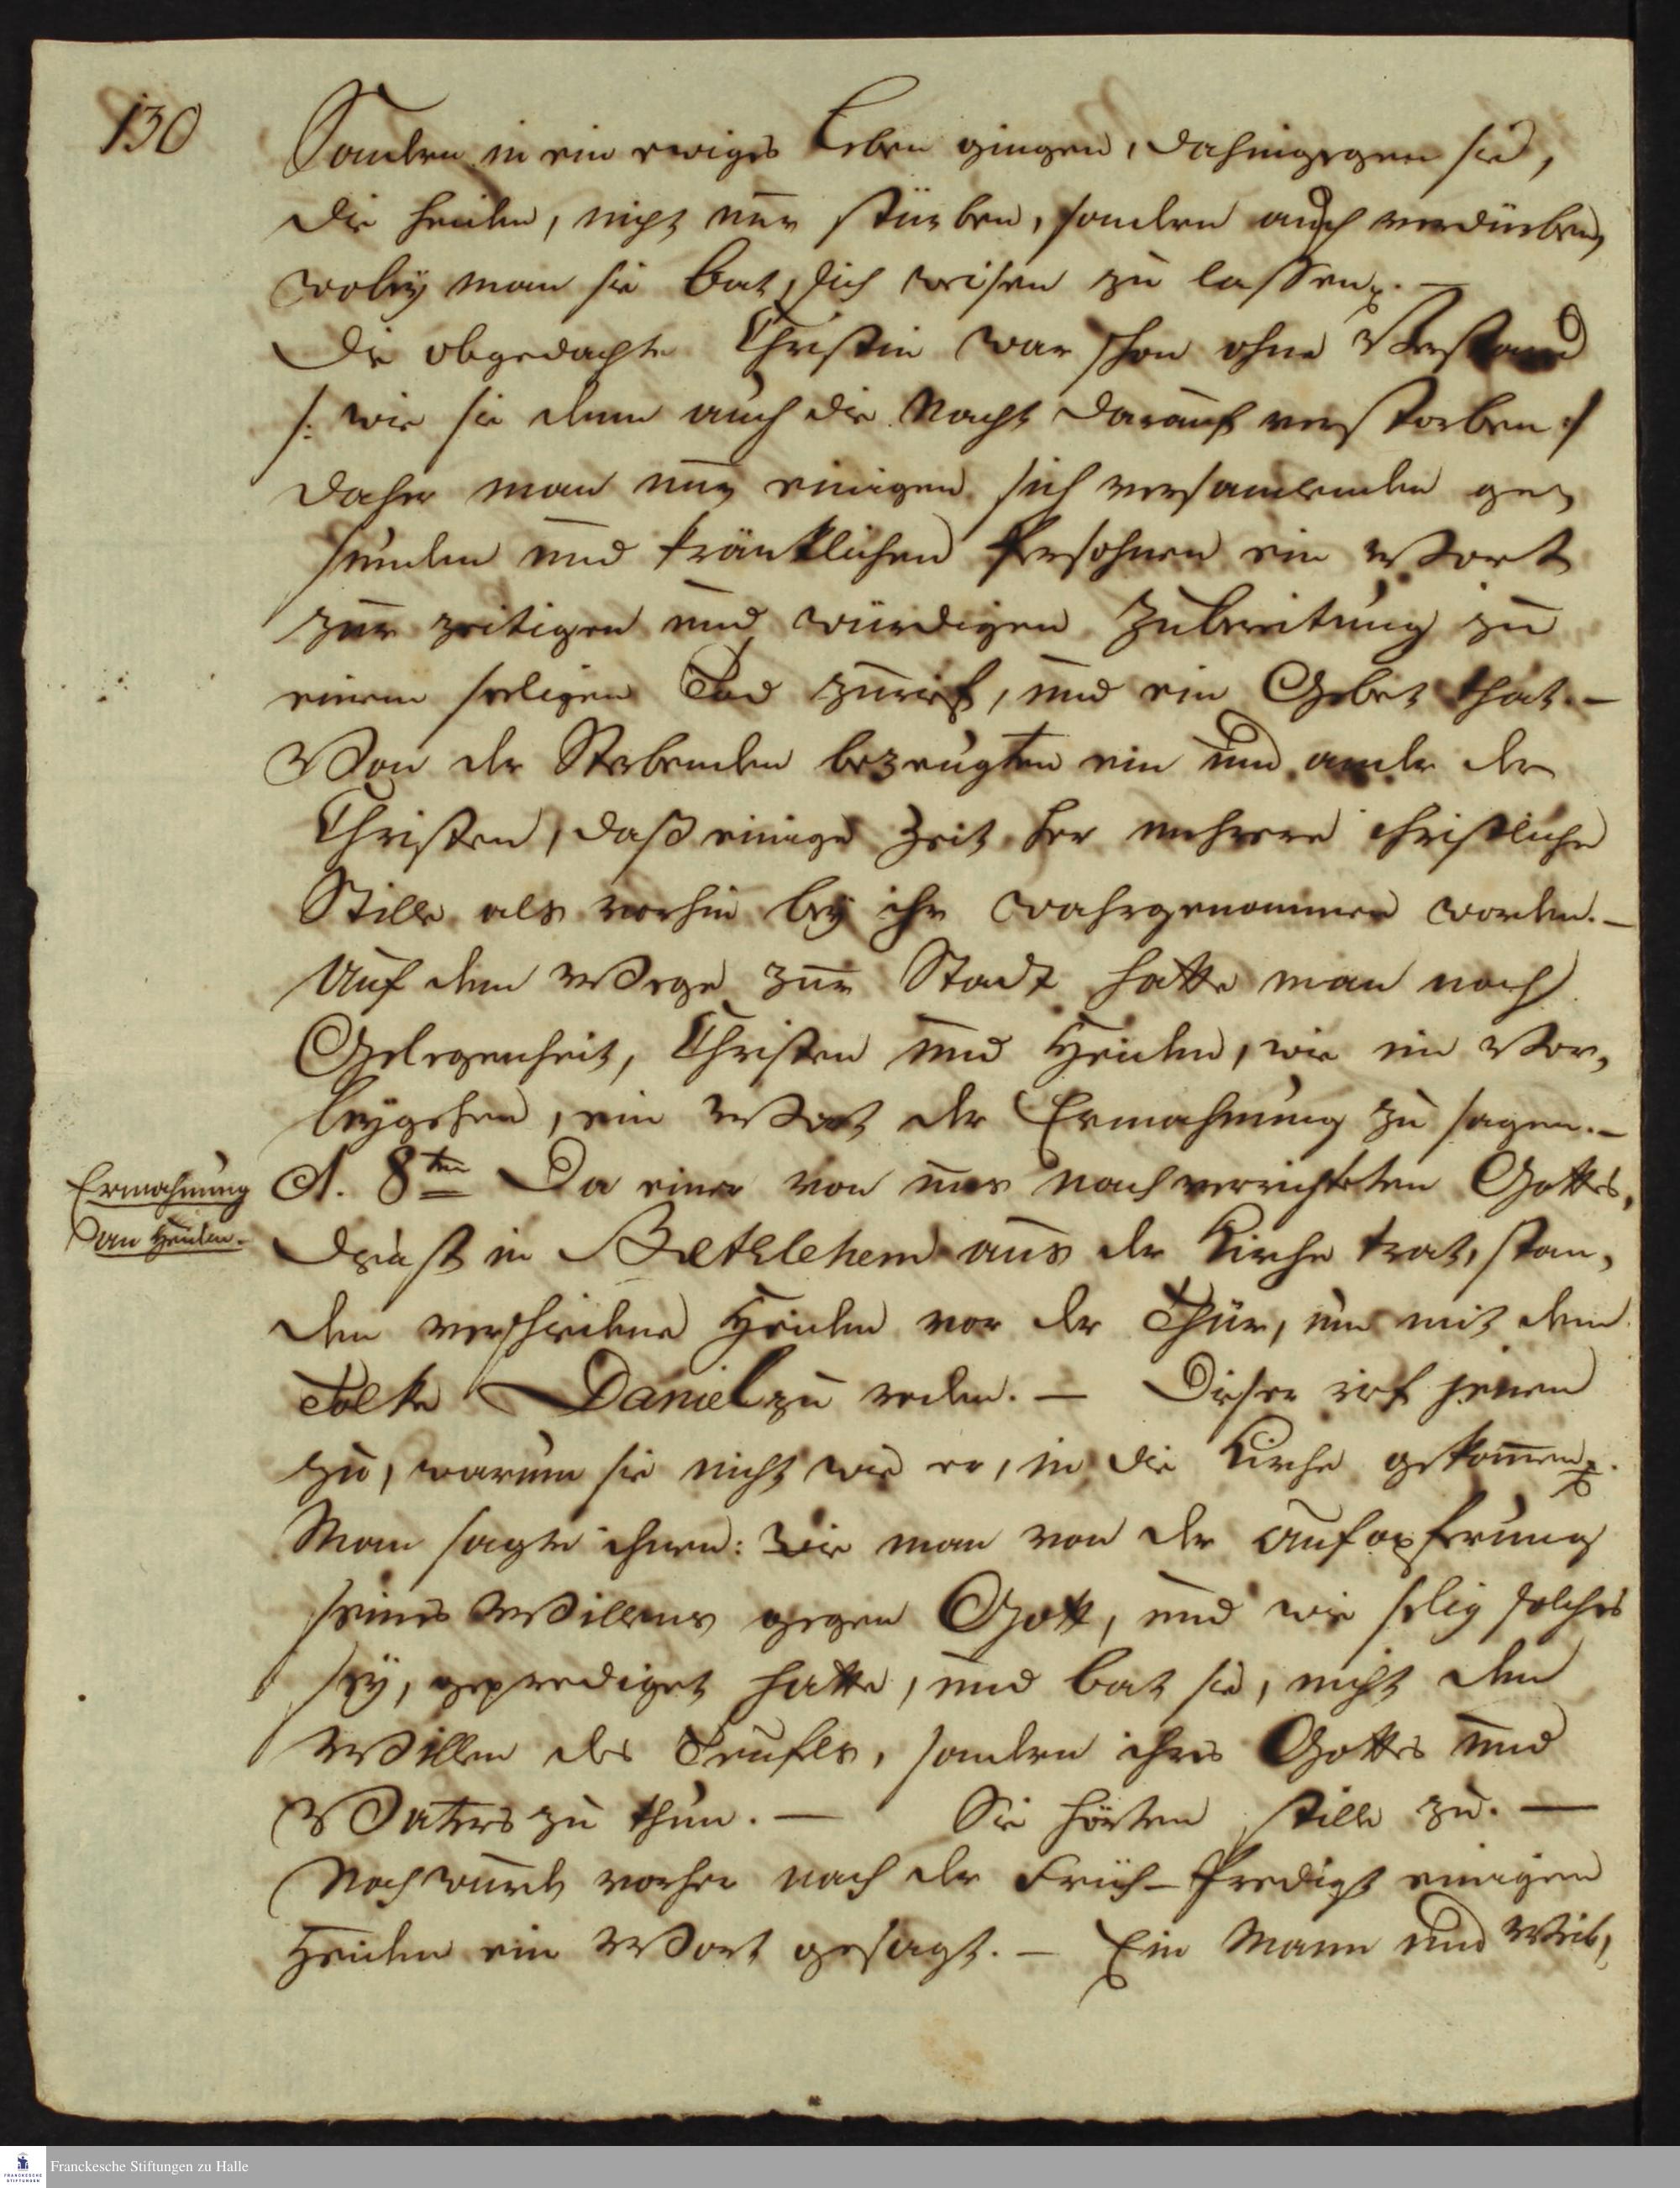 130
Sondern in ein ewiges Leben gingen, dahingegen sie,
die Heiden, nicht nur stürben, sondern auch verdürben,
wobey man sie bat, sich weisen zu lassen. –
Die obgedachte Christin war schon ohne Verstand
/: wie sie denn auch die Nacht darauf verstorben :/
daher man nur einigen sich versamlenden ge-
sunden und kränklichen Persohnen ein Wort
zur zeitigen und würdigen Zubereitung zu
einem seligen Tod zurief, und ein Gebet that. –
Von der Sterbenden bezeugten ein und andre der
Christen, daß einige Zeit her mehrere christliche
Stille als vorhin bey ihr wahrgenommen worden. –
Auf dem Wege zur Stadt hatte man noch
Gelegenheit, Christen und Heiden, wie im Vor-
beygehen, ein Wort der Ermahnung zu sagen. –
Ermahnung
an Heiden.
d. 8ten Da einer von uns nach verrichteten Gottes-
dienst in Bethlehem aus der Kirche trat, stan-
den verschiedene Heiden vor der Thür, um mit dem
Tolke Daniel zu reden. – Dieser rief jenen
zu, warum sie nicht wie er, in die Kirche gekom̄en.
Man sagte ihnen: wie man von der Aufopferung
seines Willens gegen Gott, und wie selig solches
sey, geprediget hatte, und bat sie, nicht den
Willen des Teufels, sondern ihres Gottes und
Vaters zu thun. – Sie hörten stille zu. –
Noch wurde vorher nach der Früh-Predigt einigen
Heiden ein Wort gesagt. – Ein Mann und Weib,
Franckesche Stiftungen zu Halle